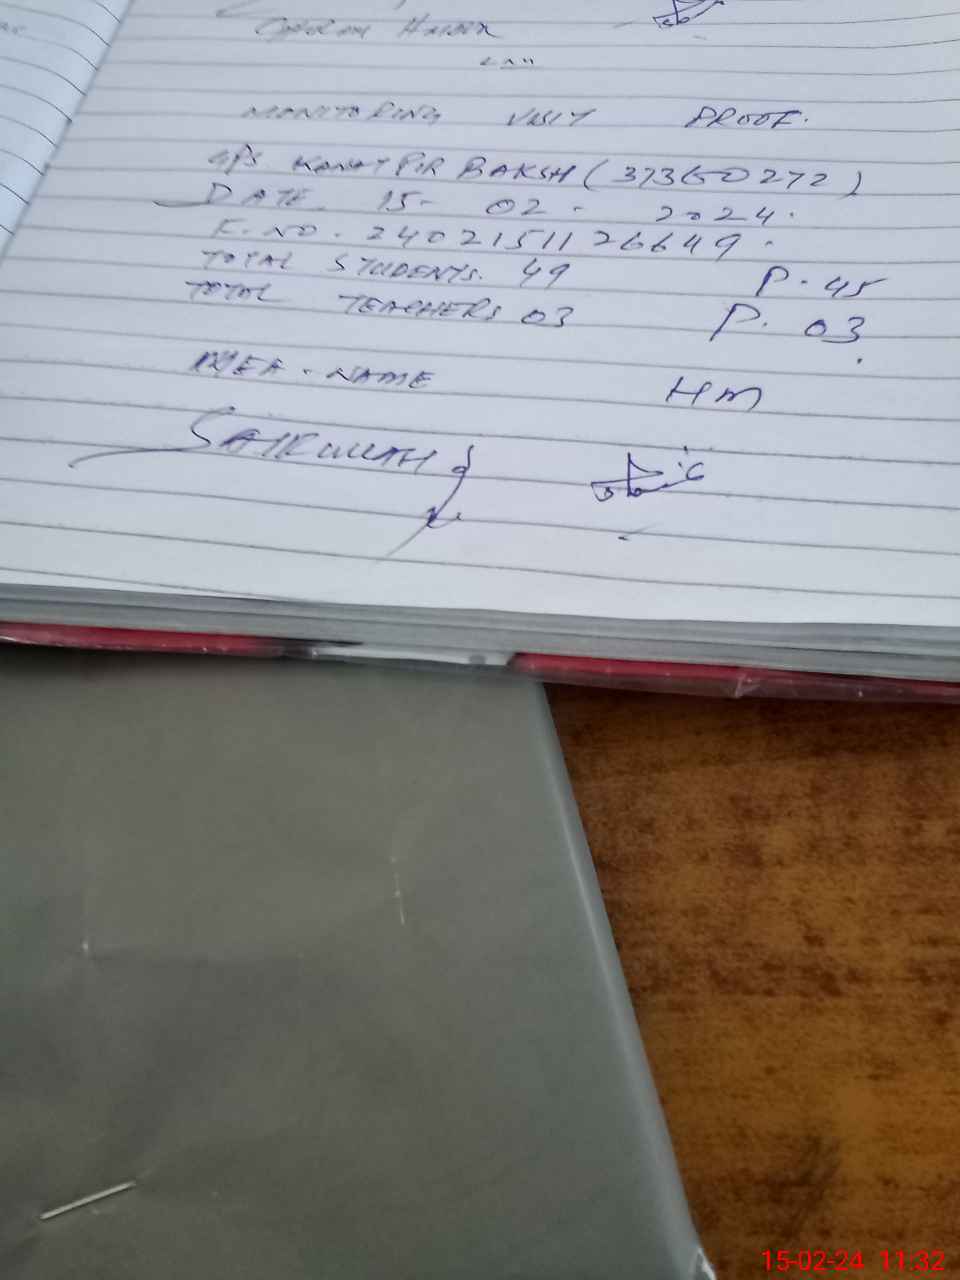 MONITORING VISIT PROOF.
GPS. KOHAT PIR BAKSH (37360272)
DATE 15- 02 - 2024.
F. NO. 2402151126649.
TOTAL STUDENTS. 49 P. 45
TOTAL TEACHERS 03 P. 03
MEA. NAME HM
15-02-24 11:32